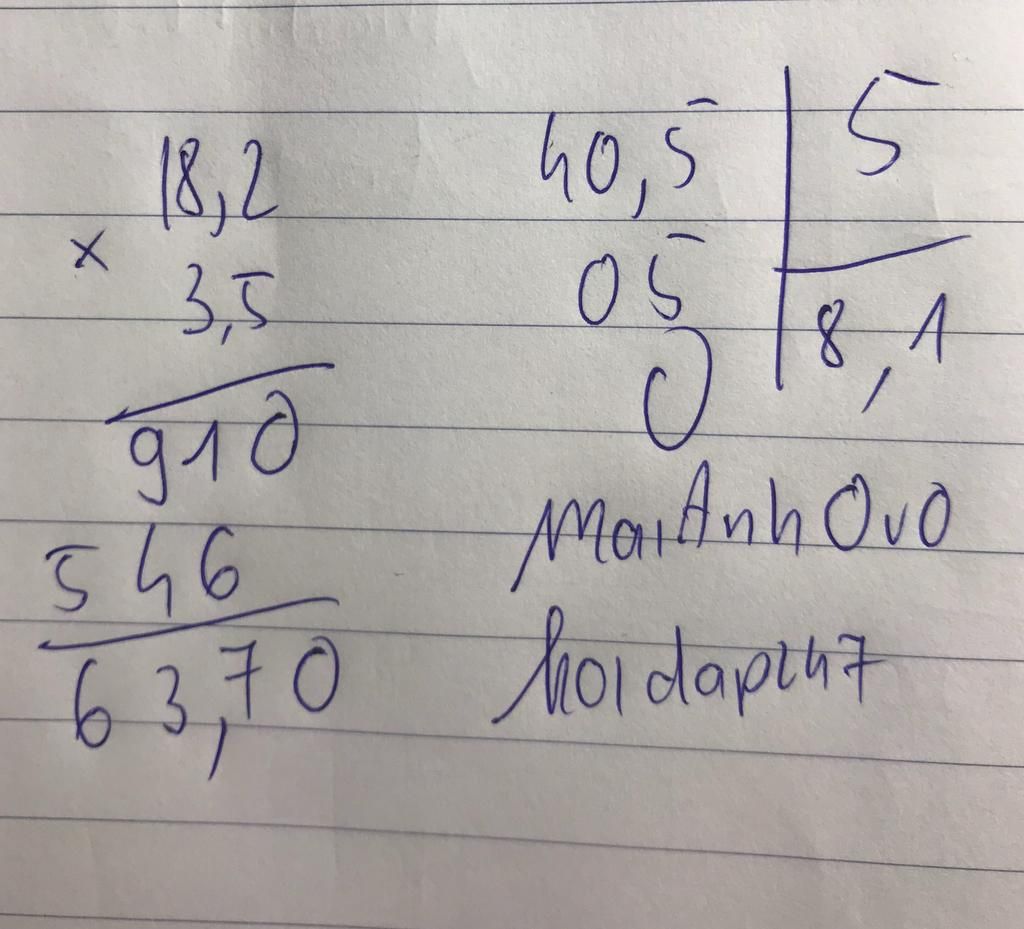 18,2
×
3,5
910
546
63,70
40,5 5
05 8,1
0
MaiAnh OvO
hoidap247